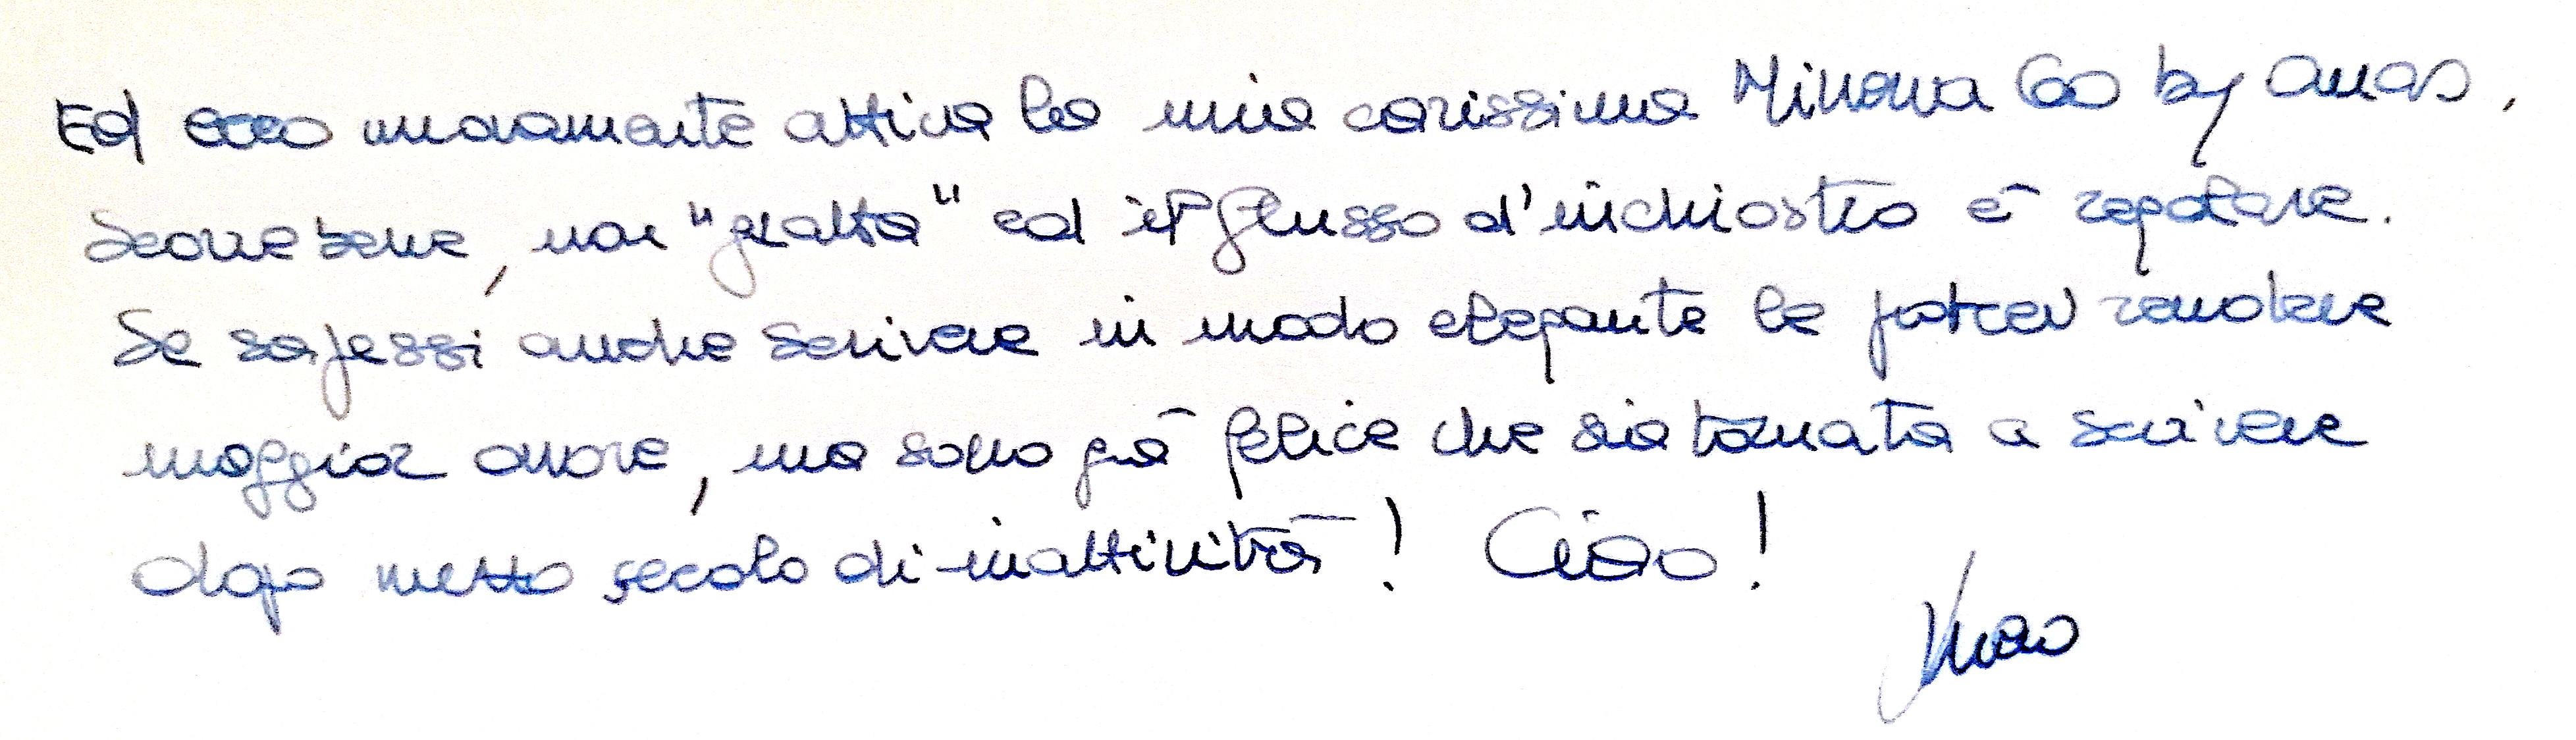 Ed ecco nuovamente attiva la mia carissima Minerva 60 by Omas,
Scorre bene, non "gratta" ed il flusso d'inchiostro è regolare.
Se sapessi anche scrivere in modo elegante le potrei rendere
maggior onore, ma sono già felice che sia tornata a scrivere
dopo mezzo secolo di inattività! Ciao!